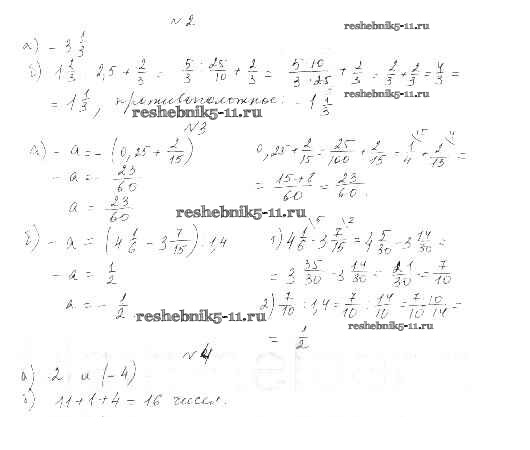 №2
reshebnik5-11.ru
а) - 3 1/3
б) 1 2/3 : 2,5 + 2/3 = 5/3 : 25/10 + 2/3 = 5·10/3·25 + 2/3 = 2/3 + 2/3 = 4/3 =
= 1 1/3, противоположное: - 1 1/3
reshebnik5-11.ru
reshebnik5-11.ru
№3
а) - a = - (0,25 + 2/15) 0,25 + 2/15 = 25/100 + 2/15 = 1/4 \15 + 2/15 \4 =
- a = - 23/60 = 15+8/60 = 23/60.
a = 23/60
reshebnik5-11.ru
б) - a = (4 1/6 - 3 7/15) : 1,4 1) 4 1/6 \5 - 3 7/15 \2 = 4 5/30 - 3 14/30 =
- a = 1/2 = 3 35/30 - 3 14/30 = 21/30 = 7/10
a = - 1/2 2) 7/10 : 1,4 = 7/10 : 14/10 = 7/10 · 10/14 =
reshebnik5-11.ru
reshebnik5-11.ru
= 1/2
№4
а) 2 и (-4)
б) 11+1+4 = 16 чисел.